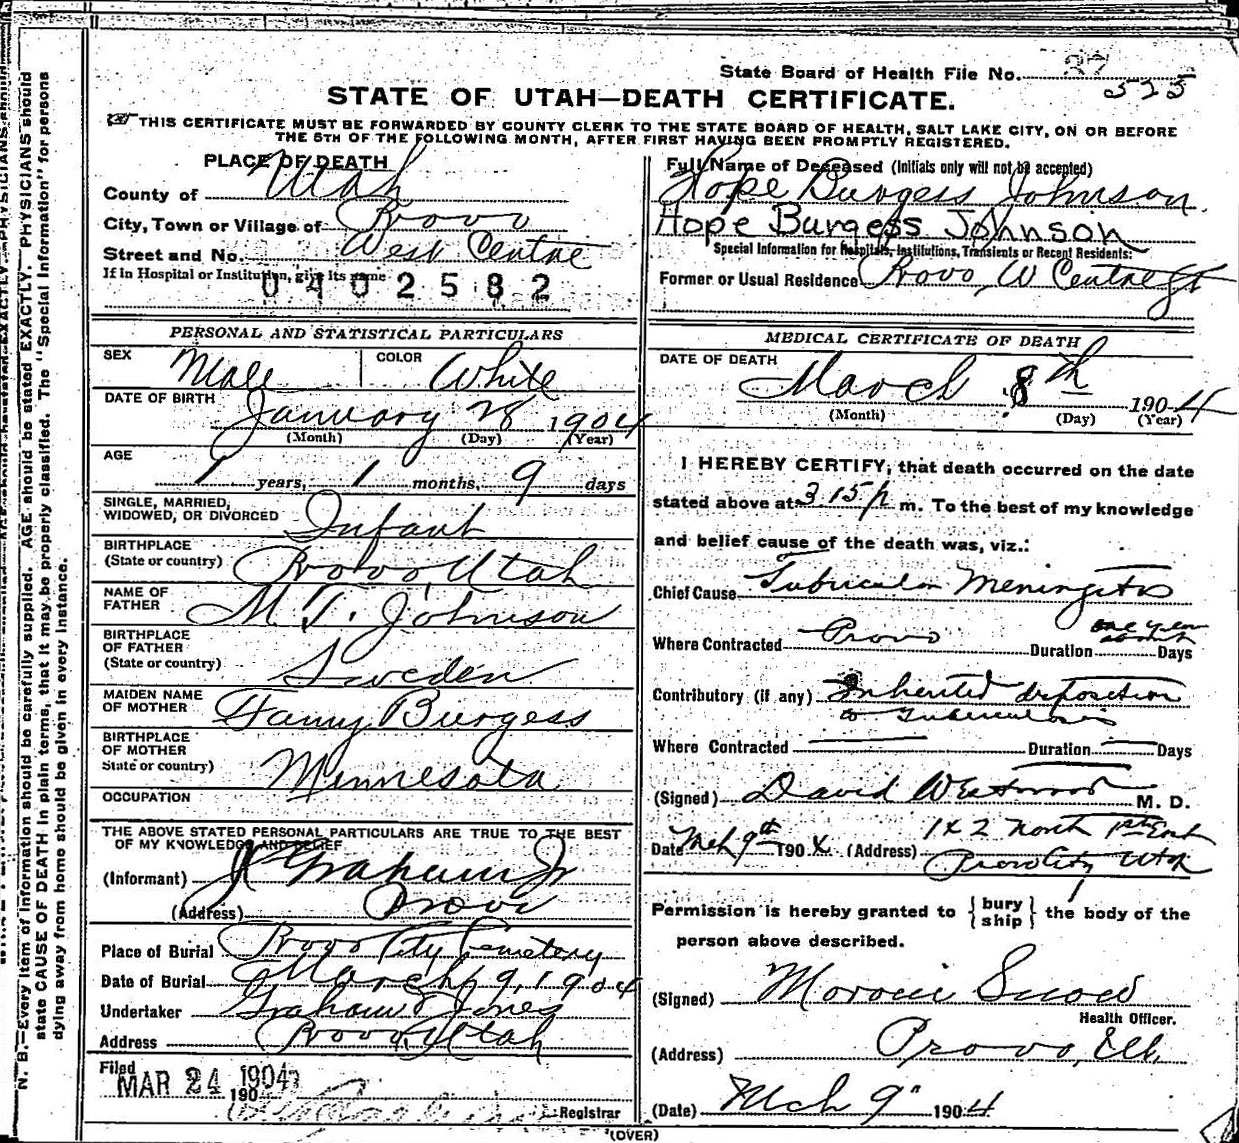 State Board of Health File No. 37
525
STATE OF UTAH—DEATH CERTIFICATE.
THIS CERTIFICATE MUST BE FORWARDED BY COUNTY CLERK TO THE STATE BOARD OF HEALTH, SALT LAKE CITY, ON OR BEFORE
THE 5TH OF THE FOLLOWING MONTH, AFTER FIRST HAVING BEEN PROMPTLY REGISTERED.
PLACE OF DEATH
County of Utah
City, Town or Village of Provo
Street and No. West Centre
If in Hospital or Institution, give its name
0402582
Full Name of Deceased (Initials only will not be accepted)
Hope Burgess Johnson
Hope Burgess Johnson
Special Information for Hospitals, Institutions, Transients or Recent Residents:
Former or Usual Residence Provo, W Centre St
PERSONAL AND STATISTICAL PARTICULARS
SEX Male COLOR White
DATE OF BIRTH January 28 1904
(Month) (Day) (Year)
AGE
1 years, 1 months, 9 days
SINGLE, MARRIED,
WIDOWED, OR DIVORCED Infant
BIRTHPLACE
(State or country) Provo, Utah
NAME OF
FATHER M. T. Johnson
BIRTHPLACE
OF FATHER
(State or country) Sweden
MAIDEN NAME
OF MOTHER Fanny Burgess
BIRTHPLACE
OF MOTHER
State or country) Minnesota
OCCUPATION
THE ABOVE STATED PERSONAL PARTICULARS ARE TRUE TO THE BEST
OF MY KNOWLEDGE AND BELIEF
(Informant) Graham Jr
(Address) Provo
Place of Burial Provo City Cemetery
Date of Burial March 9, 1904
Undertaker Graham & Jones
Address Provo, Utah
Filed
MAR 24 1904
190
Registrar
MEDICAL CERTIFICATE OF DEATH
DATE OF DEATH
March 8th 1904
(Month) (Day) (Year)
I HEREBY CERTIFY, that death occurred on the date
stated above at 3.15 p m. To the best of my knowledge
and belief cause of the death was, viz.:
Chief Cause Tubicular Meningitis
one year
about
Where Contracted Provo Duration Days
Contributory (if any) Inherited disposition
to Tuberculosis
Where Contracted Duration Days
(Signed) David Westwood M. D.
Date Mch 9th 1904 (Address) 142 North 1st East
Provo City Utah
Permission is hereby granted to { bury
ship } the body of the
person above described.
(Signed) Moroni Snow
Health Officer.
(Address) Provo, Ut.
(Date) Mch 9" 1904
(OVER)
N. B.—Every item of information should be carefully supplied. AGE should be stated EXACTLY. PHYSICIANS should
state CAUSE OF DEATH in plain terms, that it may be properly classified. The "Special Information" for persons
dying away from home should be given in every instance.